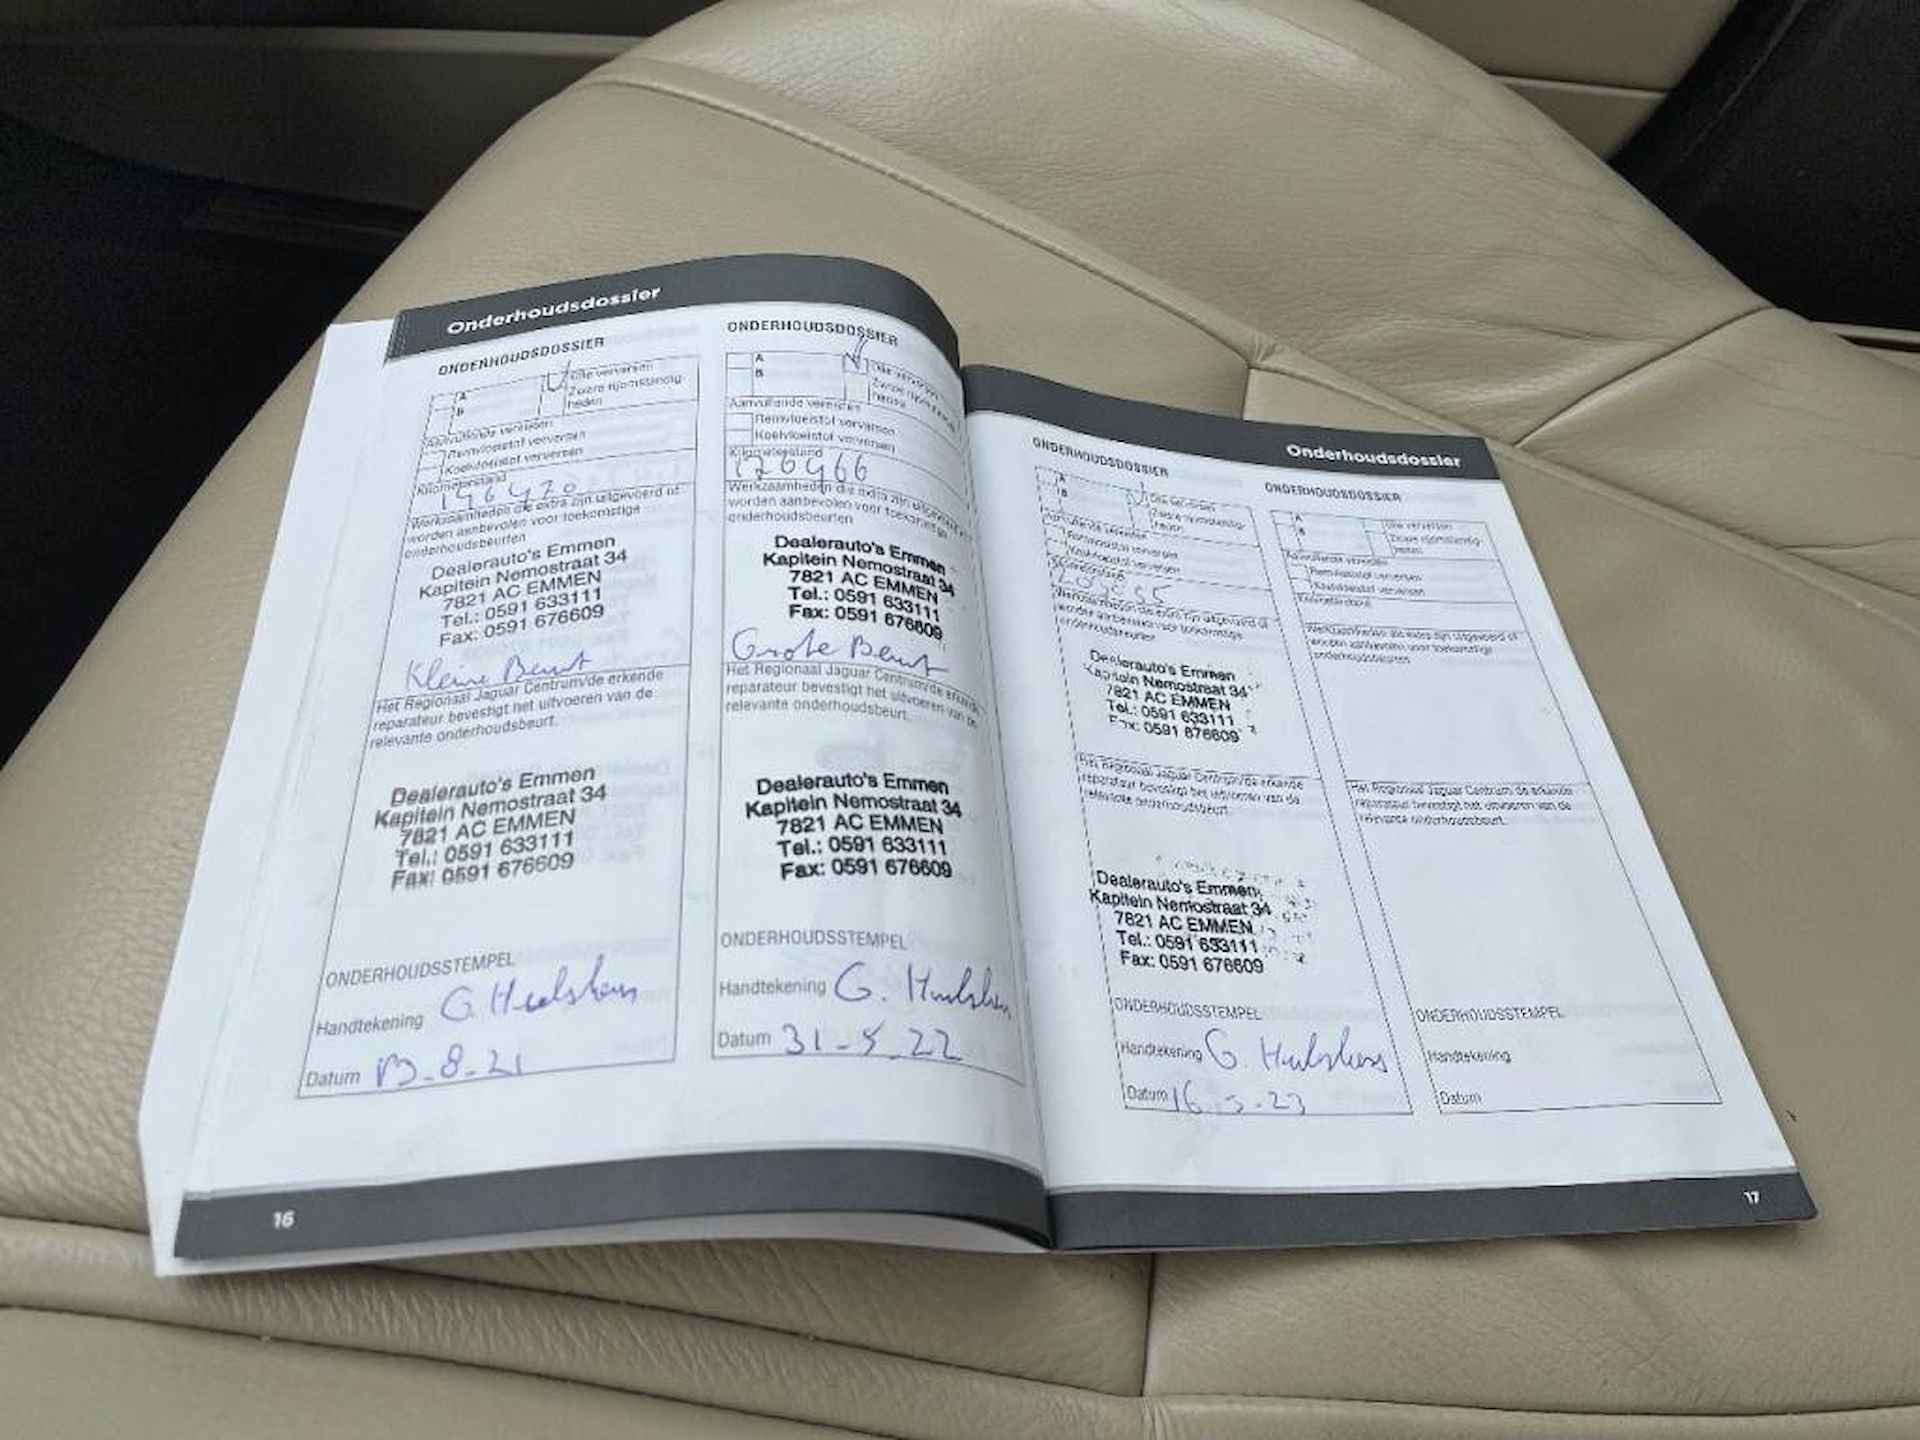 Onderhoudsdossier
ONDERHOUDSDOSSIER
A
Olie verversen
B
Zware rijomstandig-
heden
Aanvullende vereisten
Remvloeistof verversen
Koelvloeistof verversen
Kilometerstand
Werkzaamheden die extra zijn uitgevoerd of
worden aanbevolen voor toekomstige
onderhoudsbeurten
Dealerauto's Emmen
Kapitein Nemostraat 34
7821 AC EMMEN
Tel.: 0591 633111
Fax: 0591 676609
Kleine Beurt
Het Regionaal Jaguar Centrum/de erkende
reparateur bevestigt het uitvoeren van de
relevante onderhoudsbeurt.
Dealerauto's Emmen
Kapitein Nemostraat 34
7821 AC EMMEN
Tel.: 0591 633111
Fax: 0591 676609
ONDERHOUDSSTEMPEL
Handtekening G. Hulshers
Datum 13-8-21
16
ONDERHOUDSDOSSIER
A
Olie verversen
B
Zware rijomstandig-
heden
Aanvullende vereisten
Remvloeistof verversen
Koelvloeistof verversen
Kilometerstand
Werkzaamheden die extra zijn uitgevoerd of
worden aanbevolen voor toekomstige
onderhoudsbeurten
Dealerauto's Emmen
Kapitein Nemostraat 34
7821 AC EMMEN
Tel.: 0591 633111
Fax: 0591 676609
Grote Beurt
Het Regionaal Jaguar Centrum/de erkende
reparateur bevestigt het uitvoeren van de
relevante onderhoudsbeurt.
Dealerauto's Emmen
Kapitein Nemostraat 34
7821 AC EMMEN
Tel.: 0591 633111
Fax: 0591 676609
ONDERHOUDSSTEMPEL
Handtekening G. Hulshers
Datum 31-5-22
Onderhoudsdossier
ONDERHOUDSDOSSIER
A
Olie verversen
B
Zware rijomstandig-
heden
Aanvullende vereisten
Remvloeistof verversen
Koelvloeistof verversen
Kilometerstand
Werkzaamheden die extra zijn uitgevoerd of
worden aanbevolen voor toekomstige
onderhoudsbeurten
Dealerauto's Emmen
Kapitein Nemostraat 34
7821 AC EMMEN
Tel.: 0591 633111
Fax: 0591 676609
Het Regionaal Jaguar Centrum/de erkende
reparateur bevestigt het uitvoeren van de
relevante onderhoudsbeurt.
Dealerauto's Emmen
Kapitein Nemostraat 34
7821 AC EMMEN
Tel.: 0591 633111
Fax: 0591 676609
ONDERHOUDSSTEMPEL
Handtekening G. Hulshers
Datum
ONDERHOUDSDOSSIER
A
Olie verversen
B
Zware rijomstandig-
heden
Aanvullende vereisten
Remvloeistof verversen
Koelvloeistof verversen
Kilometerstand
Werkzaamheden die extra zijn uitgevoerd of
worden aanbevolen voor toekomstige
onderhoudsbeurten
Het Regionaal Jaguar Centrum/de erkende
reparateur bevestigt het uitvoeren van de
relevante onderhoudsbeurt.
ONDERHOUDSSTEMPEL
Handtekening
Datum
17